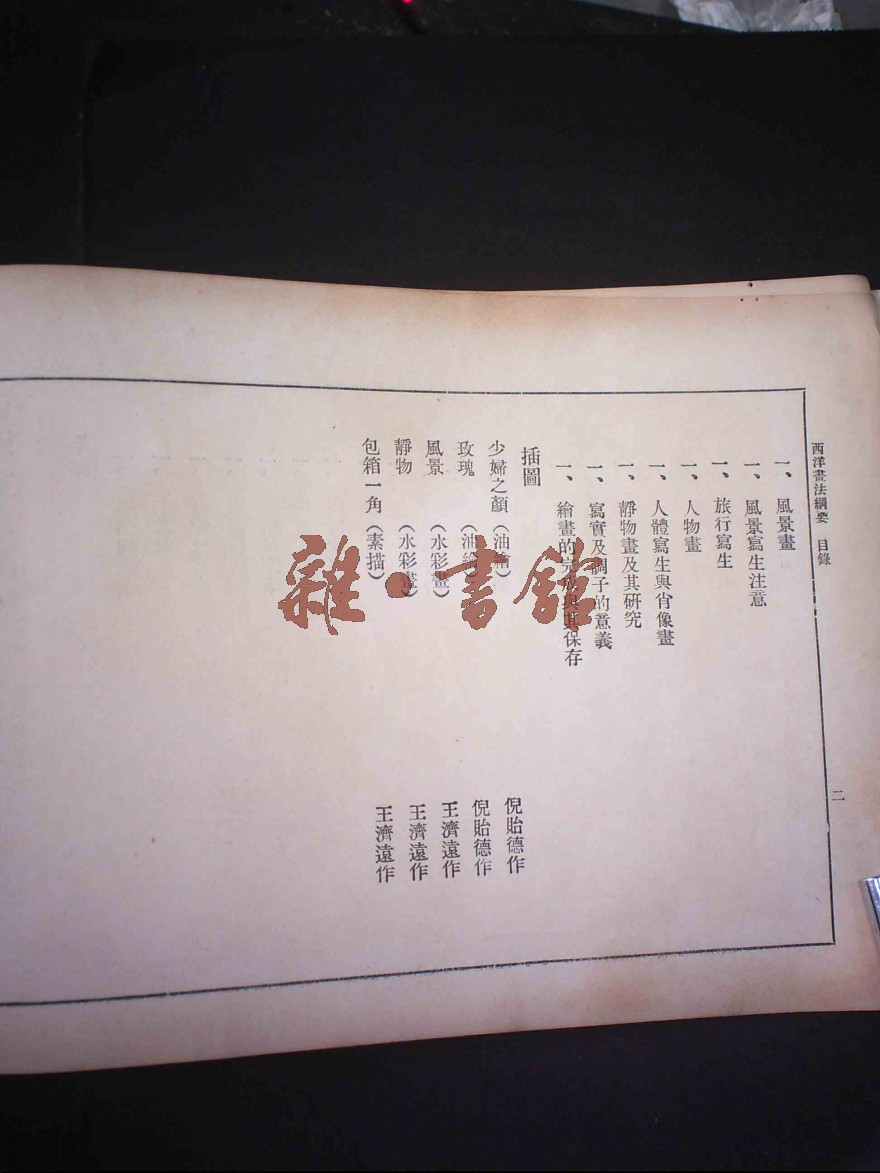 西洋畫法綱要 目錄
二
一、風景畫
一、風景寫生注意
一、旅行寫生
一、人物畫
一、人體寫生與肖像畫
一、靜物畫及其研究
一、寫實及調子的意義
一、繪畫的完成與其保存
插圖
少婦之顏（油繪） 倪貽德作
玫瑰（油繪） 倪貽德作
風景（水彩畫） 王濟遠作
靜物（水彩畫） 王濟遠作
包箱一角（素描） 王濟遠作
雜·書館